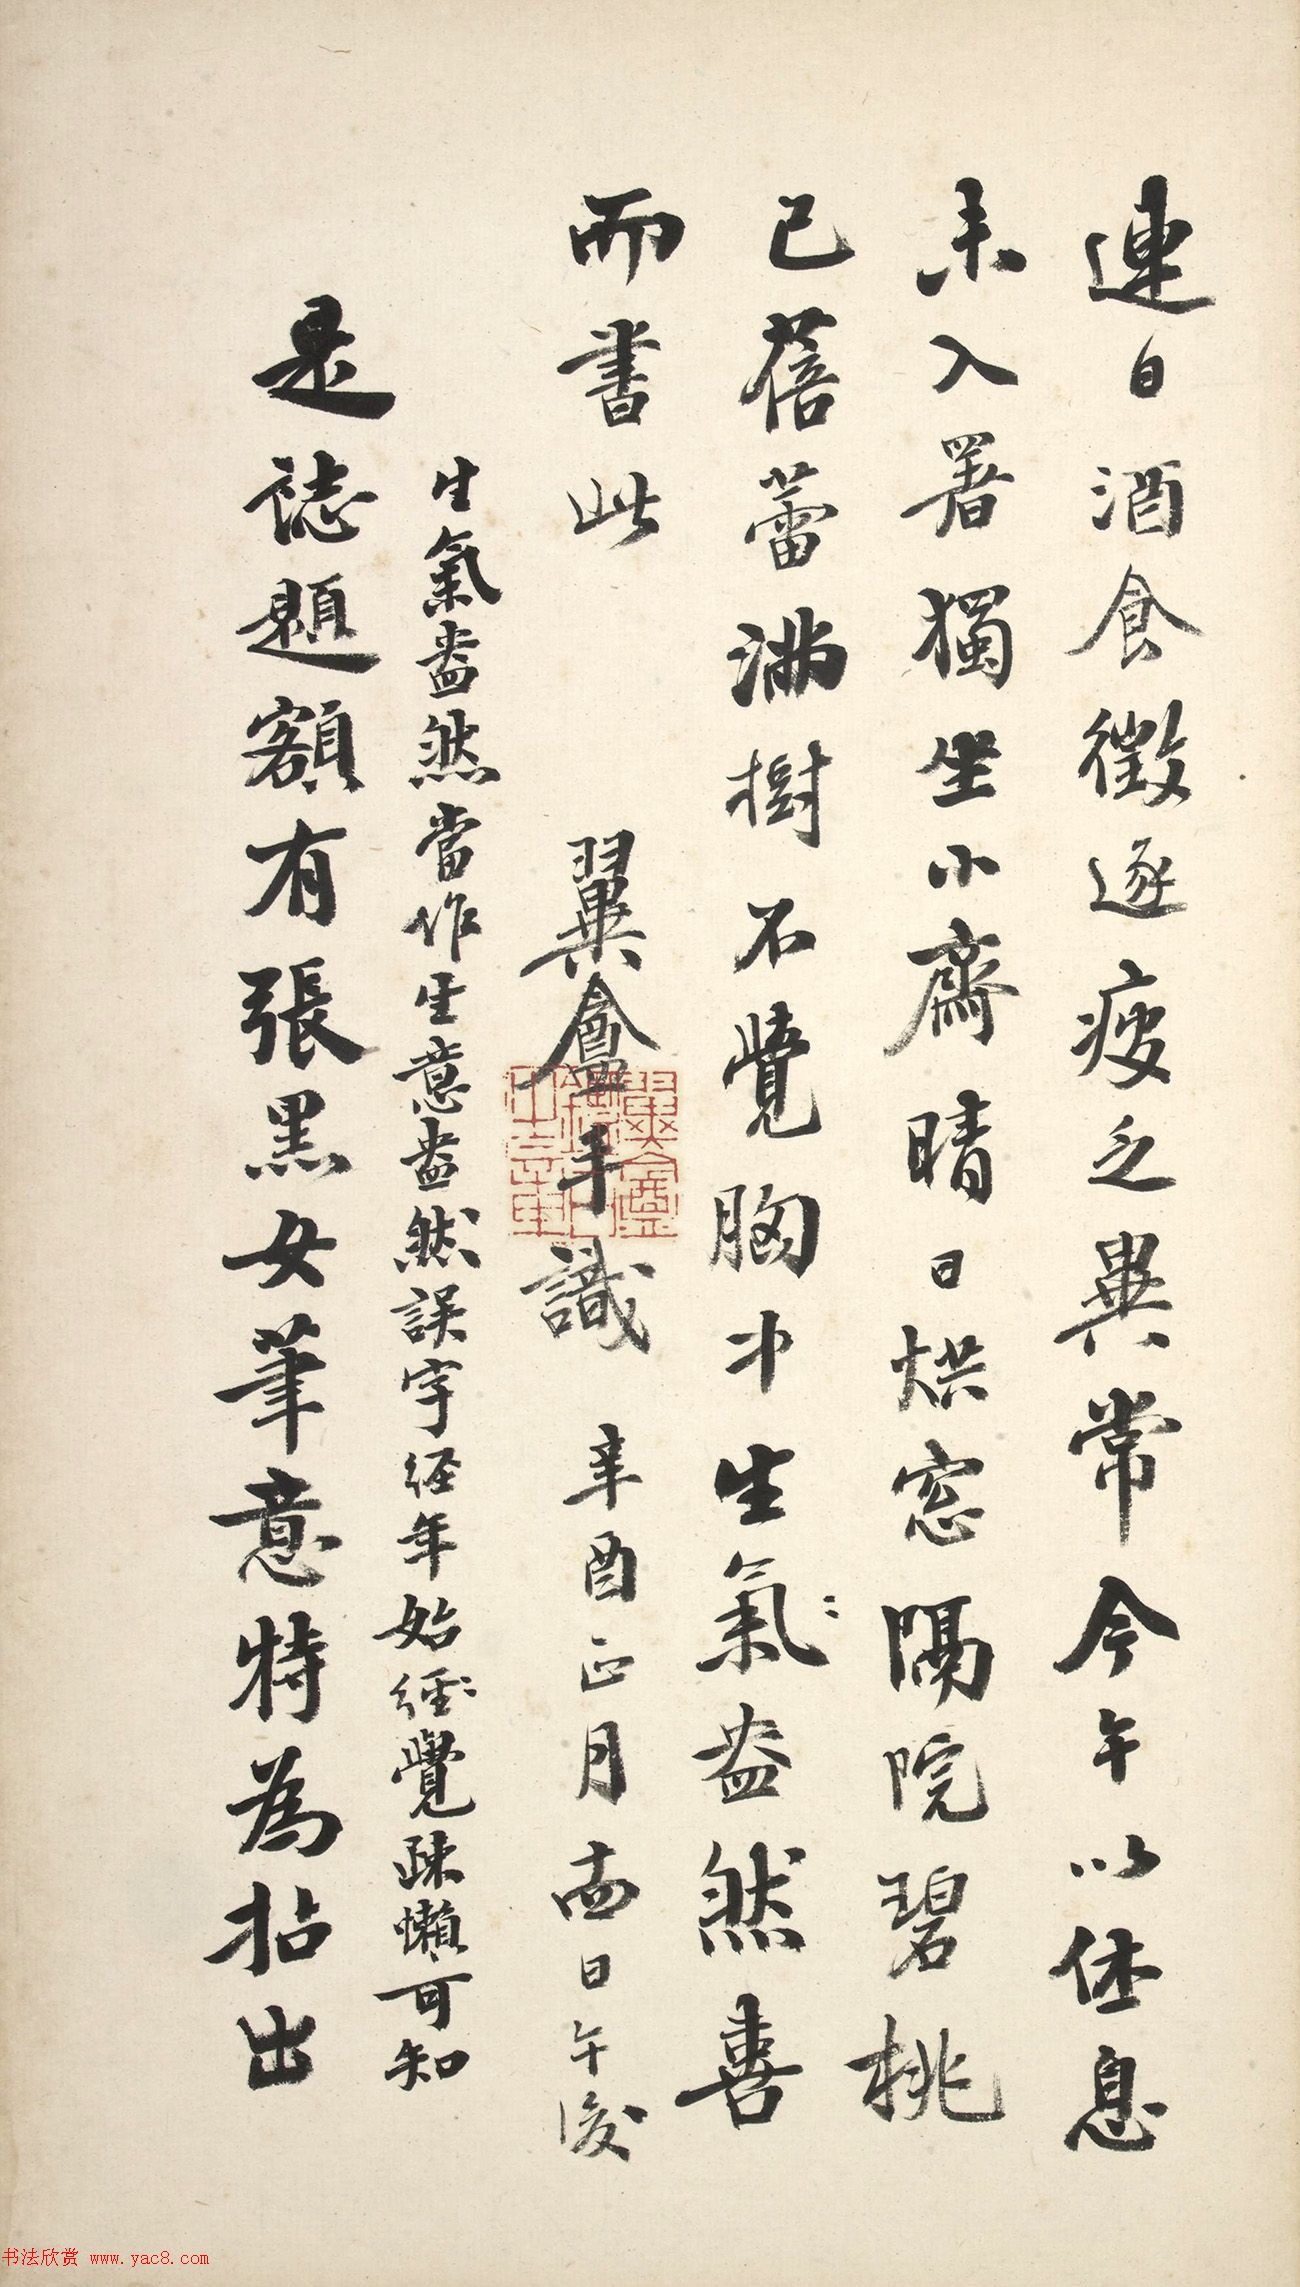 連日酒食徵逐疲乏異常今午以休息
未入署獨坐小齋晴日烘窓隔院碧桃
已蓓蕾滿樹不覺胸中生氣盎然喜
而書此　翼盦手識　辛酉正月廿四日午後
生氣盎然當作生意盎然誤字经年始經覺疎懶可知
是誌題額有張黑女筆意特為拈出
书法欣赏 www.yac8.com